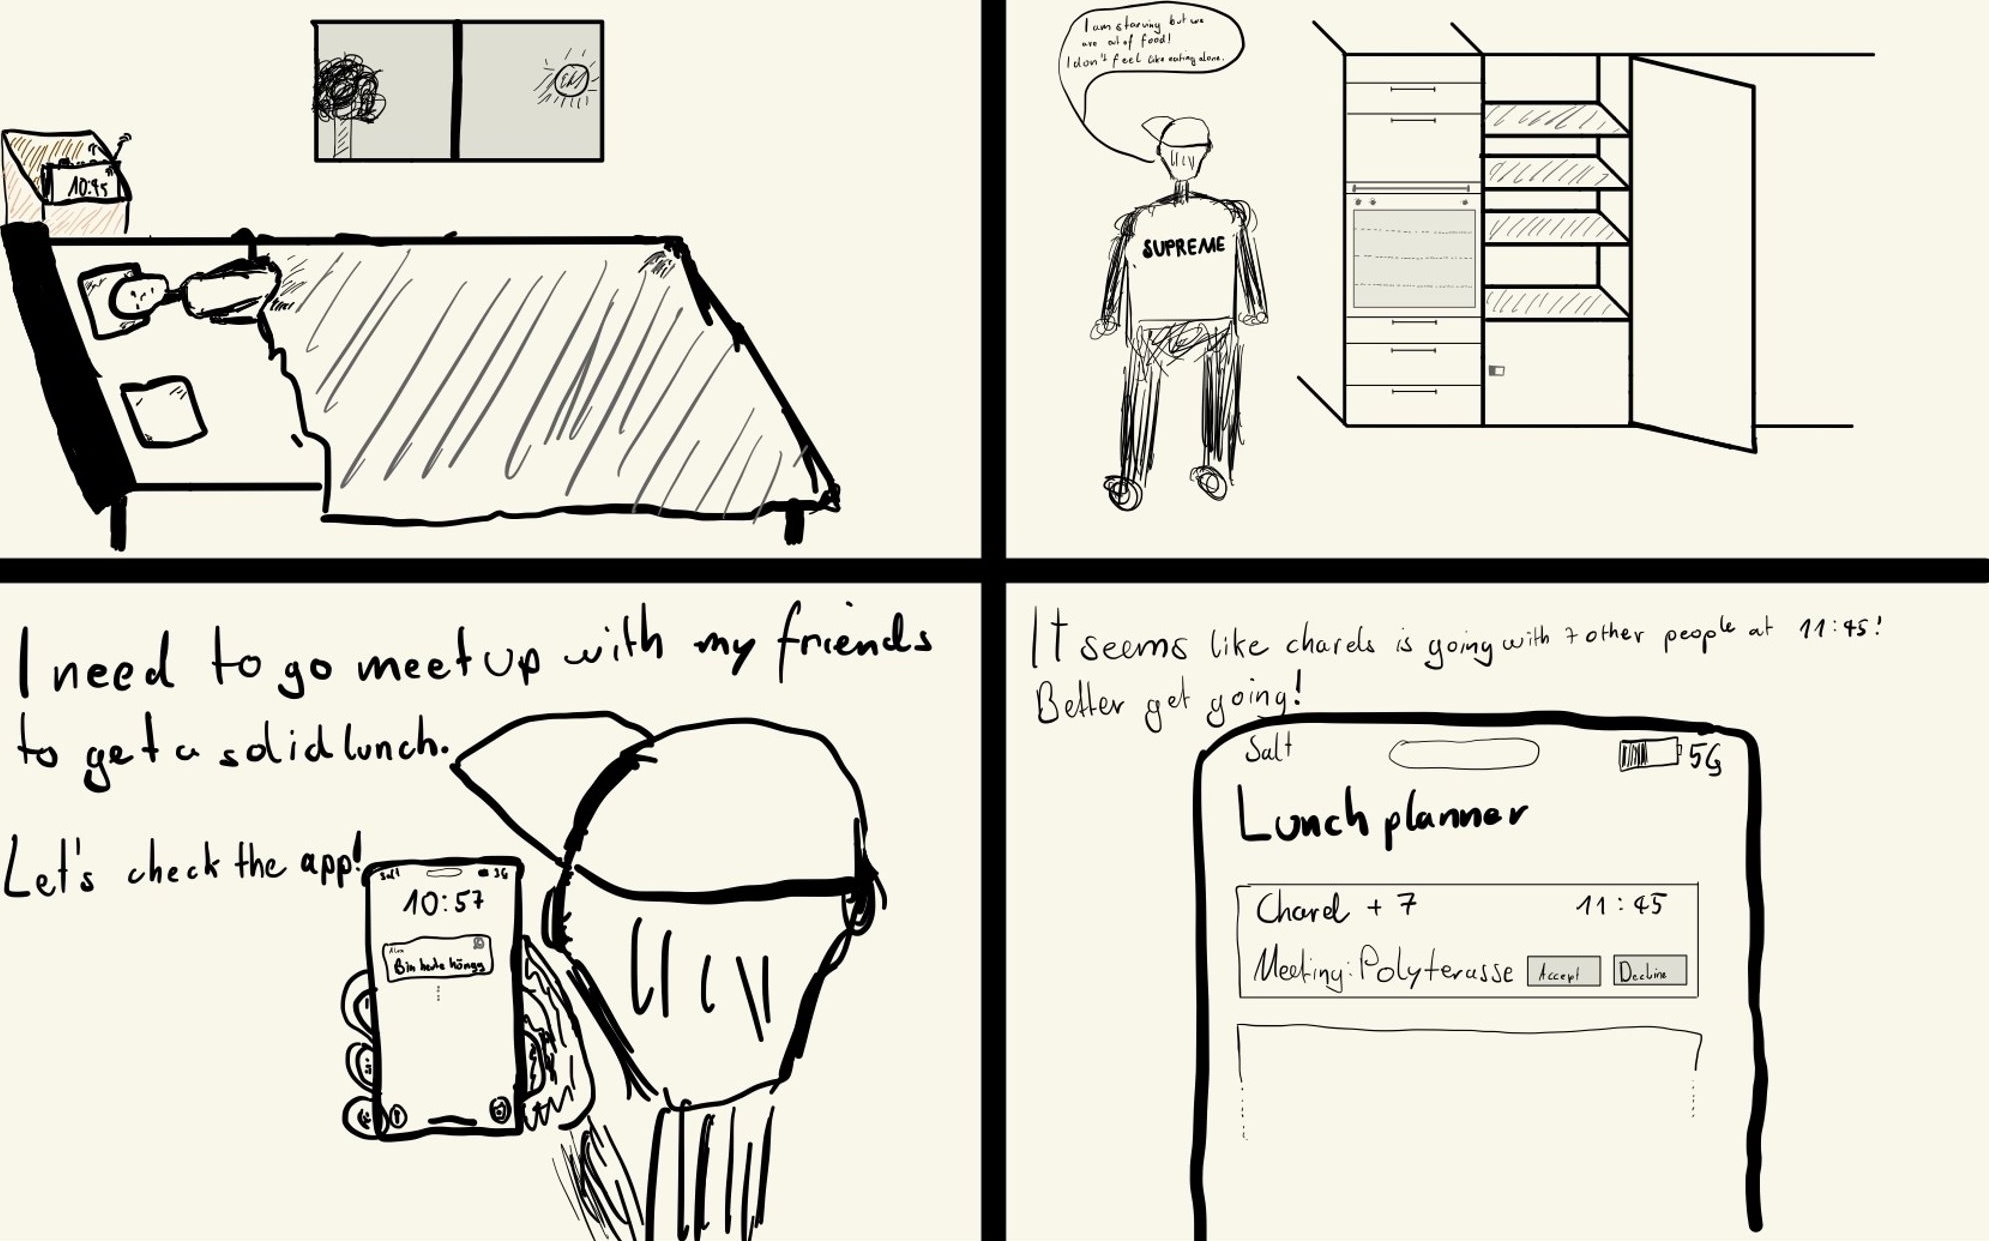 10:45
I am starving but we
are out of food!
I don't feel like eating alone.
SUPREME
I need to go meet up with my friends
to get a solid lunch.
Let's check the app!
Salt 3G
10:57
Alex
Bin heute höngg
It seems like charels is going with 7 other people at 11:45!
Better get going!
Salt 5G
Lunch planner
Charel + 7 11:45
Meeting: Polyterasse Accept Decline